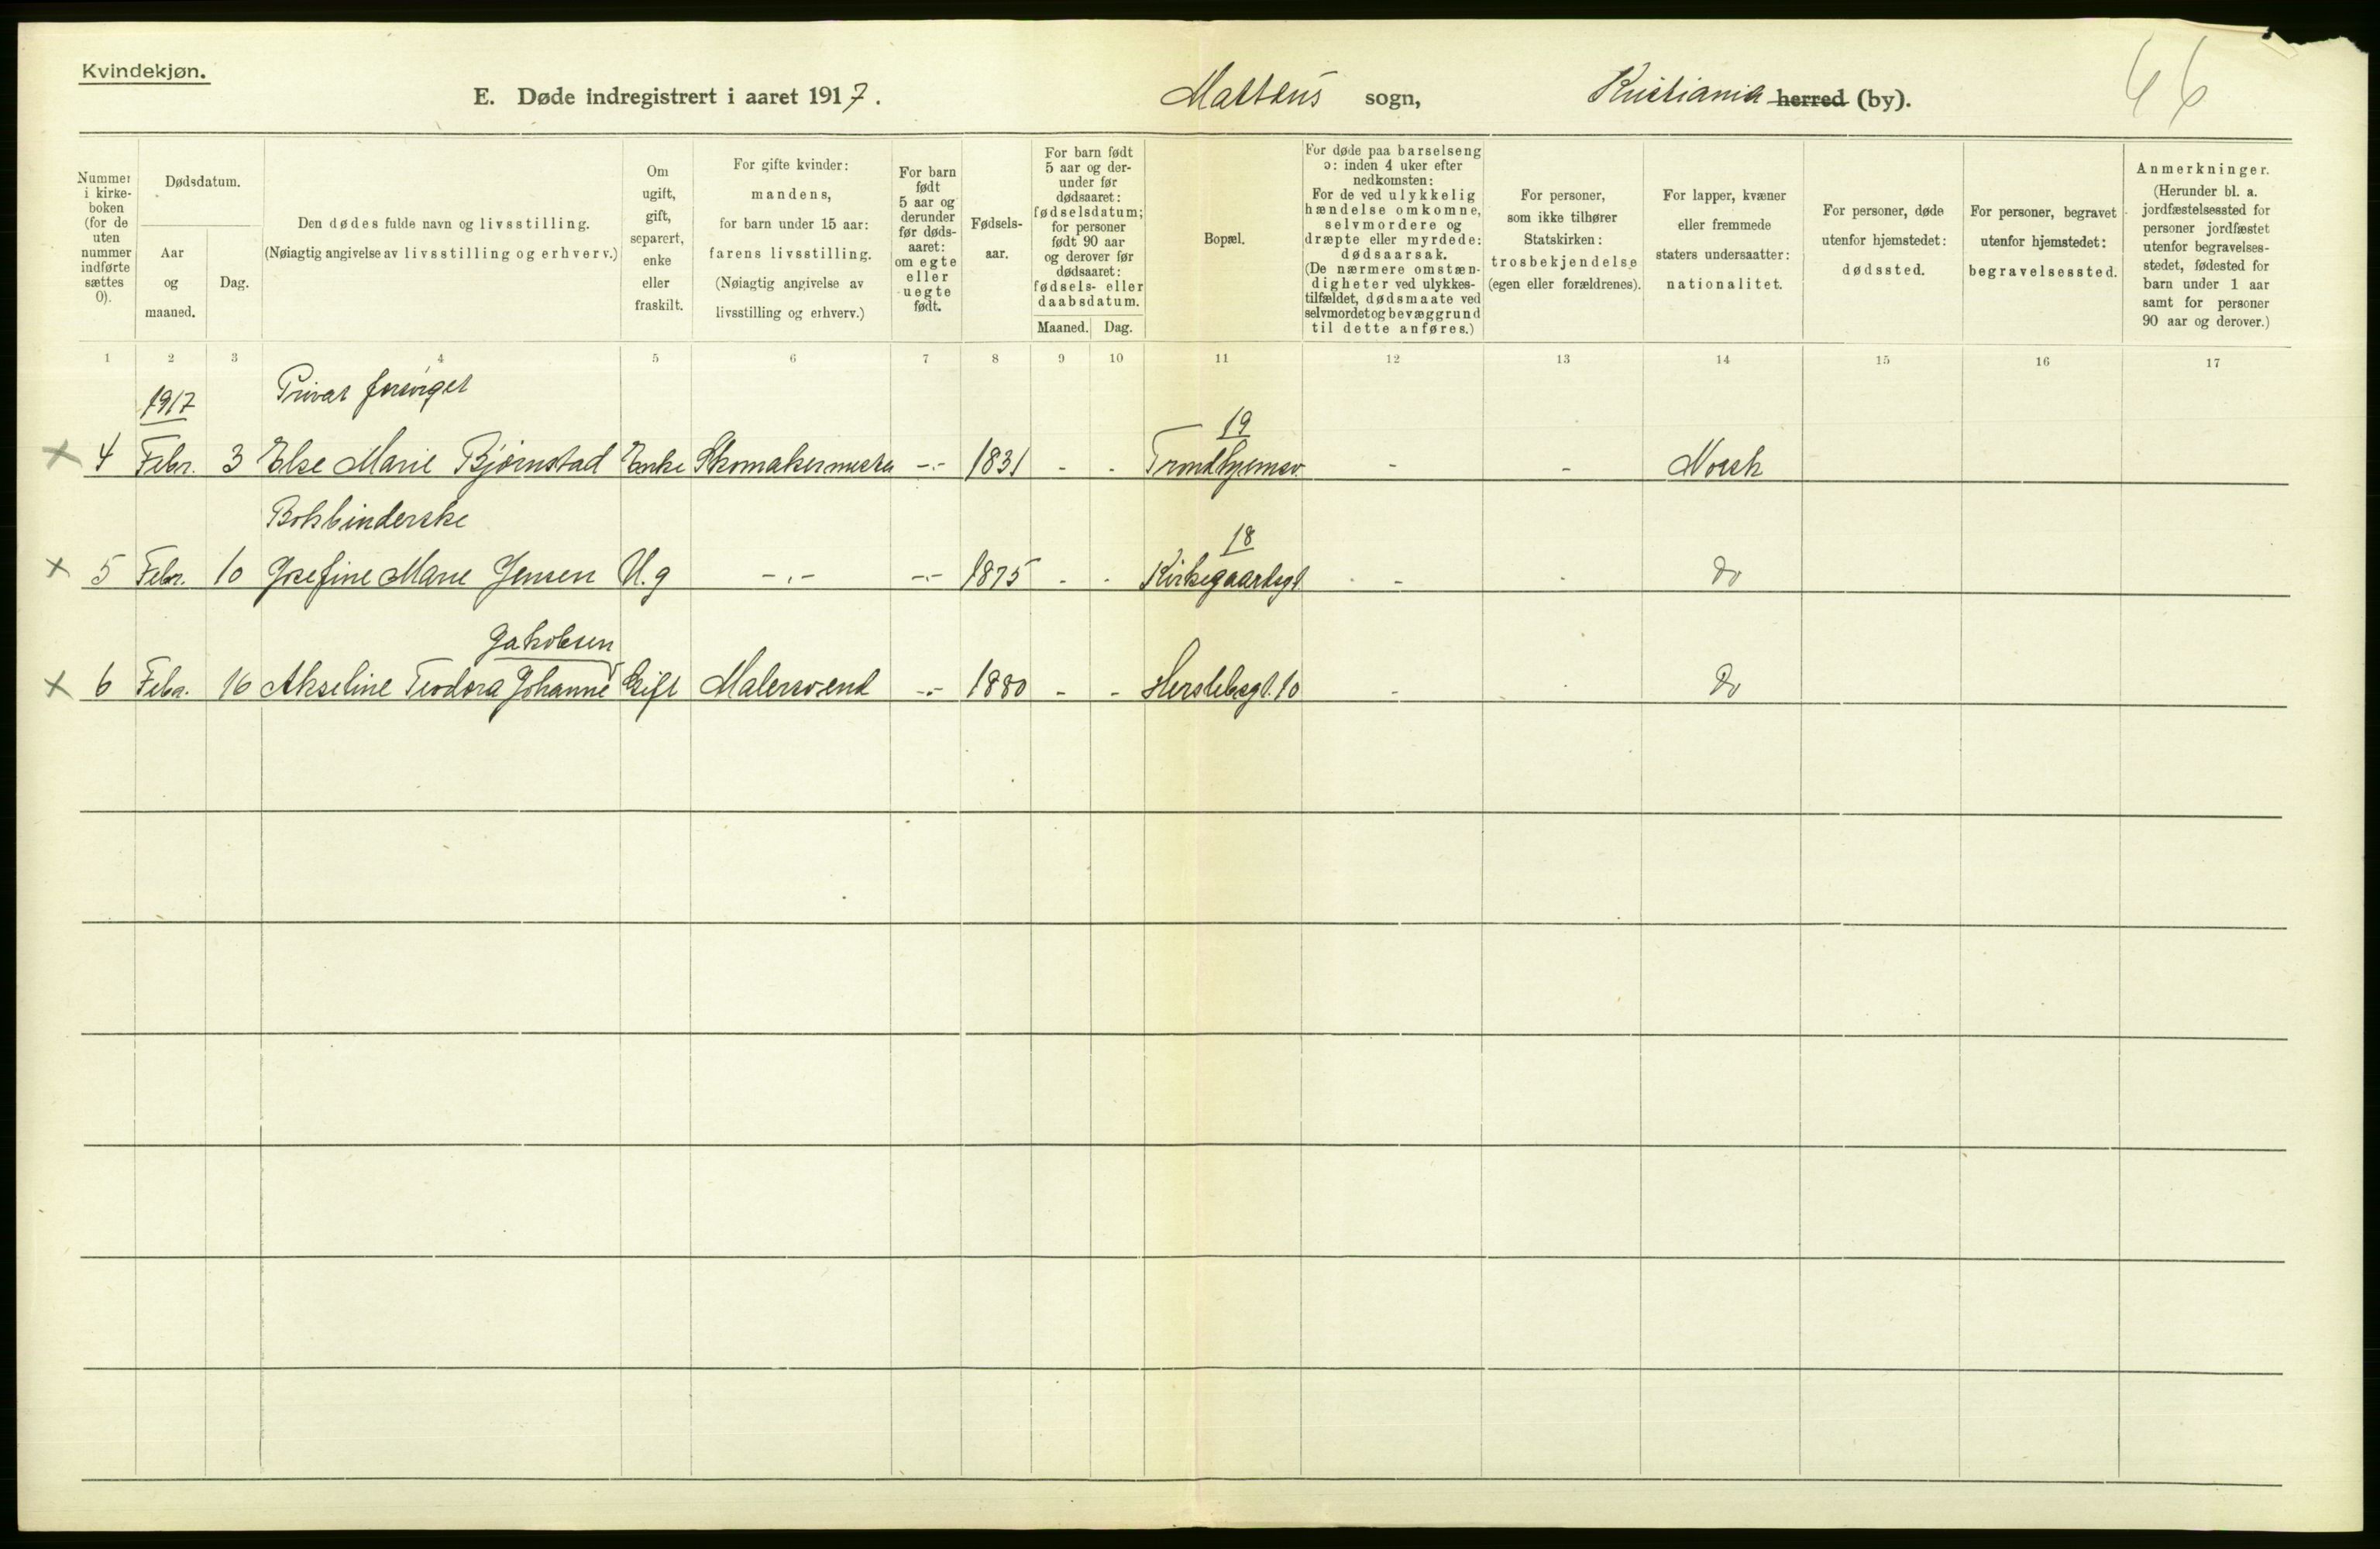 Kvindekjøn.
E. Døde indregistrert i aaret 1917.
Matteus sogn,
Kristiania herred (by).
66
Nummer i kirke-boken (for de uten nummer indførte sættes 0).
Dødsdatum.
Aar og maaned.
Dag.
Den dødes fulde navn og livsstilling.
(Nøiagtig angivelse av livsstilling og erhverv.)
Om ugift, gift, separert, enke eller fraskilt.
For gifte kvinder: mandens, for barn under 15 aar: farens livsstilling. (Nøiagtig angivelse av livsstilling og erhverv.)
For barn født 5 aar og derunder før døds-aaret: om egte eller uegte født.
Fødsels-aar.
For barn født 5 aar og der-under før dødsaaret: fødselsdatum; for personer født 90 aar og derover før dødsaaret: fødsels- eller daabsdatum.
Maaned.
Dag.
Bopæl.
For døde paa barselseng ɔ: inden 4 uker efter nedkomsten: For de ved ulykkelig hændelse omkomne, selvmordere og dræpte eller myrdede: dødsaarsak. (De nærmere omstæn-digheter ved ulykkes-tilfældet, dødsmaate ved selvmordet og bevæggrund til dette anføres.)
For personer, som ikke tilhører Statskirken: trosbekjendelse (egen eller forældrenes).
For lapper, kvæner eller fremmede staters undersaatter: nationalitet.
For personer, døde utenfor hjemstedet: dødssted.
For personer, begravet utenfor hjemstedet: begravelsessted.
Anmerkninger. (Herunder bl. a. jordfæstelsessted for personer jordfæstet utenfor begravelses-stedet, fødested for barn under 1 aar samt for personer 90 aar og derover.)
1 2 3 4 5 6 7 8 9 10 11 12 13 14 15 16 17
1917 Privat forsørget
19
× 4 Febr. 3 Else Marie Bjørnstad Enke Skomakermester -.- 1831 - - Trondhjemsv. - - Norsk
Bokbinderske
18
× 5 Febr. 10 Josefine Marie Jensen U.g -.- -.- 1875 - - Kirkegaardsgt. - - do
Jakobsen
× 6 Febr. 16 Akseline Teodora Johanne Gift Malersvend -.- 1880 - - Herslebsgt. 10 - - do